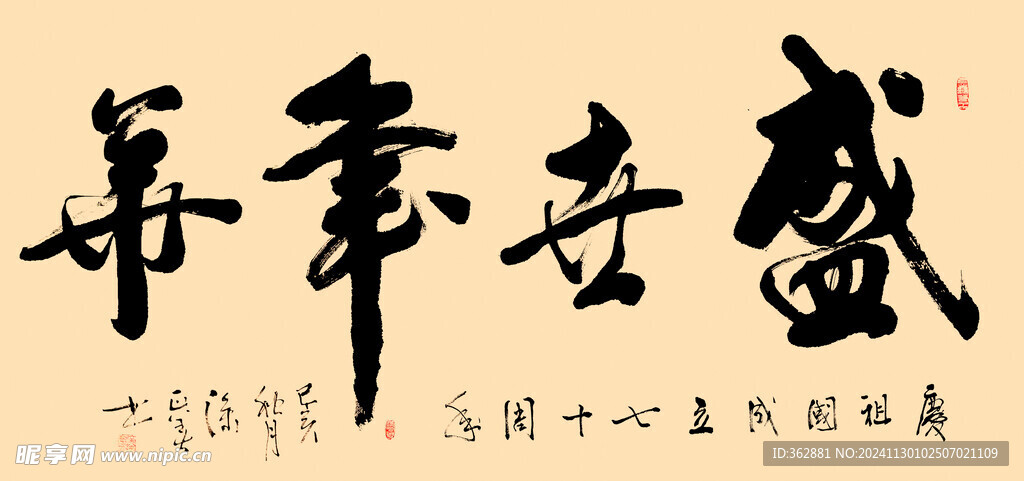 盛世年華
慶祖國成立七十周年
己亥
秋月
书
昵享网 www.nipic.cn
ID:362881 NO:20241130102507021109